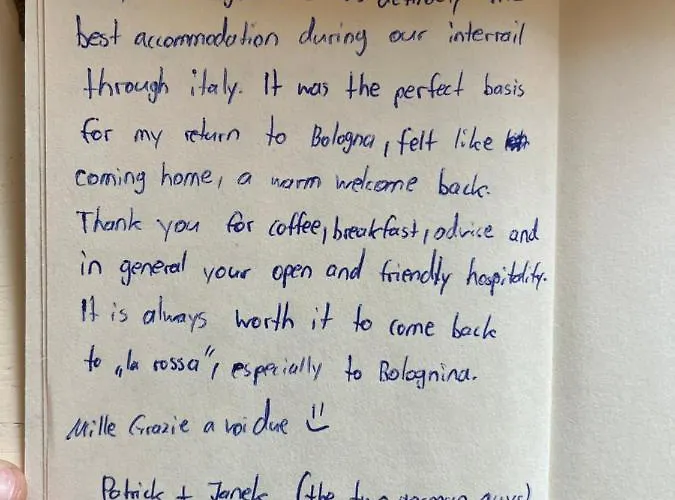 best accommodation during our interrail
through italy. It was the perfect basis
for my return to Bologna, felt like
coming home, a warm welcome back.
Thank you for coffee, breakfast, advice and
in general your open and friendly hospitality.
It is always worth it to come back
to „la rossa“, especially to Bolognina.
Mille Grazie a voi due
Patrick + Janek (the two german guys)